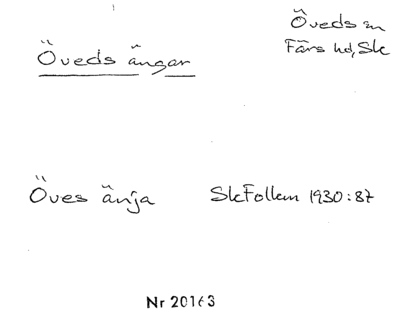 Öveds sn
Färs hd, Sk
Öveds ängar
Öves änja SkFolkm 1930:87
Nr 20163